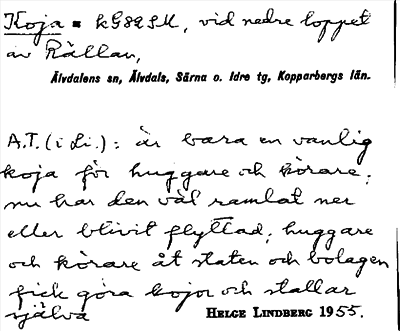 Koja = kG82SM, vid nedre loppet
av Rällan,
Älvdalens sn, Älvdals, Särna o. Idre tg, Kopparbergs län.
A.T. (i Li.): är bara en vanlig
koja för huggare och körare;
nu har den väl ramlat ner
eller blivit flyttad; huggare
och körare åt staten och bolagen
fick göra kojor och stallar
själva
HELGE LINDBERG 1955.